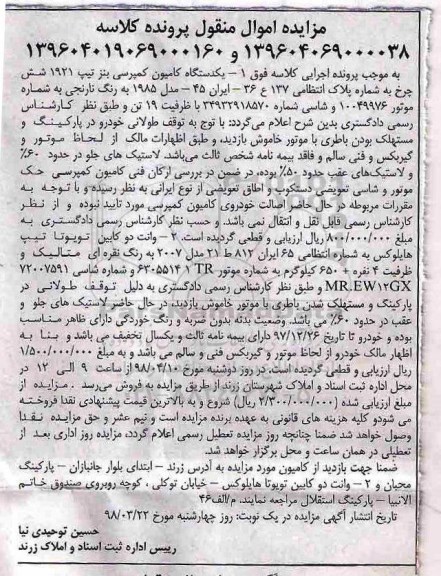 مزایده اموال منقول پرونده کلاسه
۱۳۹۶۰۴۰۶۹۰۰۰۰۳۸ و ۱۳۹۶۰۴۰۱۹۰۶۹۰۰۰۱۶۰
به موجب پرونده اجرایی کلاسه فوق ۱ - یکدستگاه کامیون کمپرسی بنز تیپ ۱۹۲۱ شش
چرخ به شماره پلاک انتظامی ۱۳۷ ع ۳۶ - ایران ۴۵ - مدل ۱۹۸۵ به رنگ نارنجی به شماره
موتور ۱۰۰۴۹۹۷۶ و شاسی شماره ۳۴۹۳۲۹۱۸۵۷۰ با ظرفیت ۱۹ تن و طبق نظر کارشناس
رسمی دادگستری بدین شرح اعلام می‌گردد: با توج به توقف طولانی خودرو در پارکینگ و
مستهلک بودن باطری با موتور خاموش بازدید، و طبق اظهارات مالک از لحاظ موتور و
گیربکس و فنی سالم و فاقد بیمه نامه شخص ثالث می‌باشد. لاستیک های جلو در حدود ۶۰٪
و لاستیک‌های عقب حدود ۵۰٪ بوده، در ضمن در بررسی ارکان فنی کامیون کمپرسی حک
موتور و شاسی تعویضی دستکوب و اطاق تعویضی از نوع ایرانی به نظر رسیده و با توجه به
مقررات مربوطه در حال حاضر اصالت خودروی کامیون کمپرسی مورد تایید نبوده و از نظر
کارشناس رسمی قابل نقل و انتقال نمی باشد. و حسب نظر کارشناس رسمی دادگستری به
مبلغ ۸۰۰/۰۰۰/۰۰۰ ریال ارزیابی و قطعی گردیده است. ۲ - وانت دو کابین تویوتا تیپ
هایلوکس به شماره انتظامی ۶۵ ایران ۸۱۲ ط ۲۱ مدل ۲۰۰۷ به رنگ نقره ای متالیک و
ظرفیت ۴ نفره + ۶۵۰ کیلوگرم به شماره موتور ۱ TR ۶۳۰۵۵۱۴ و شماره شاسی ۷۲۰۰۷۵۹۱
MR.EW۱۲GX و طبق نظر کارشناس رسمی دادگستری به دلیل توقف طولانی در
پارکینگ و مستهلک شدن باطری با موتور خاموش بازدید، در حال حاضر لاستیک های جلو و
عقب در حدود ۶۰٪ می باشد. وضعیت بدنه بدون ضربه و رنگ خوردگی دارای ظاهر مناسب
بوده و خودرو تا تاریخ ۹۷/۱۲/۲۶ دارای بیمه نامه ثالث و یکسال تخفیف می باشد و بنا به
اظهار مالک خودرو از لحاظ موتور و گیربکس فنی و سالم می باشد و به مبلغ ۱/۵۰۰/۰۰۰/۰۰۰
ریال ارزیابی و قطعی گردیده است. در روز دوشنبه مورخ ۹۸/۰۴/۱۰ از ساعت ۹ الی ۱۲ در
محل اداره ثبت اسناد و املاک شهرستان زرند از طریق مزایده به فروش می‌رسد . مزایده از
مبلغ ارزیابی شده (۲/۳۰۰/۰۰۰/۰۰۰ ریال) شروع و به بالاترین قیمت پیشنهادی نقدا فروخته
می شودو کلیه هزینه های قانونی به عهده برنده مزایده است و نیم عشر و حق مزایده نقدا
وصول خواهد شد ضمنا چنانچه روز مزایده تعطیل رسمی اعلام گردد، مزایده روز اداری بعد از
تعطیلی در همان ساعت و محل برگزار خواهد شد.
ضمنا جهت بازدید از کامیون مورد مزایده به آدرس زرند - ابتدای بلوار جانبازان - پارکینگ
محبان و ۲ - وانت دو کابین تویوتا هایلوکس - خیابان توکلی ، کوچه روبروی صندوق خاتم
الانبیا - پارکینگ استقلال مراجعه نمایند. م/الف۴۶
تاریخ انتشار آگهی مزایده در یک نوبت: روز چهارشنبه مورخ ۹۸/۰۳/۲۲
حسین توحیدی نیا
رییس اداره ثبت اسناد و املاک زرند